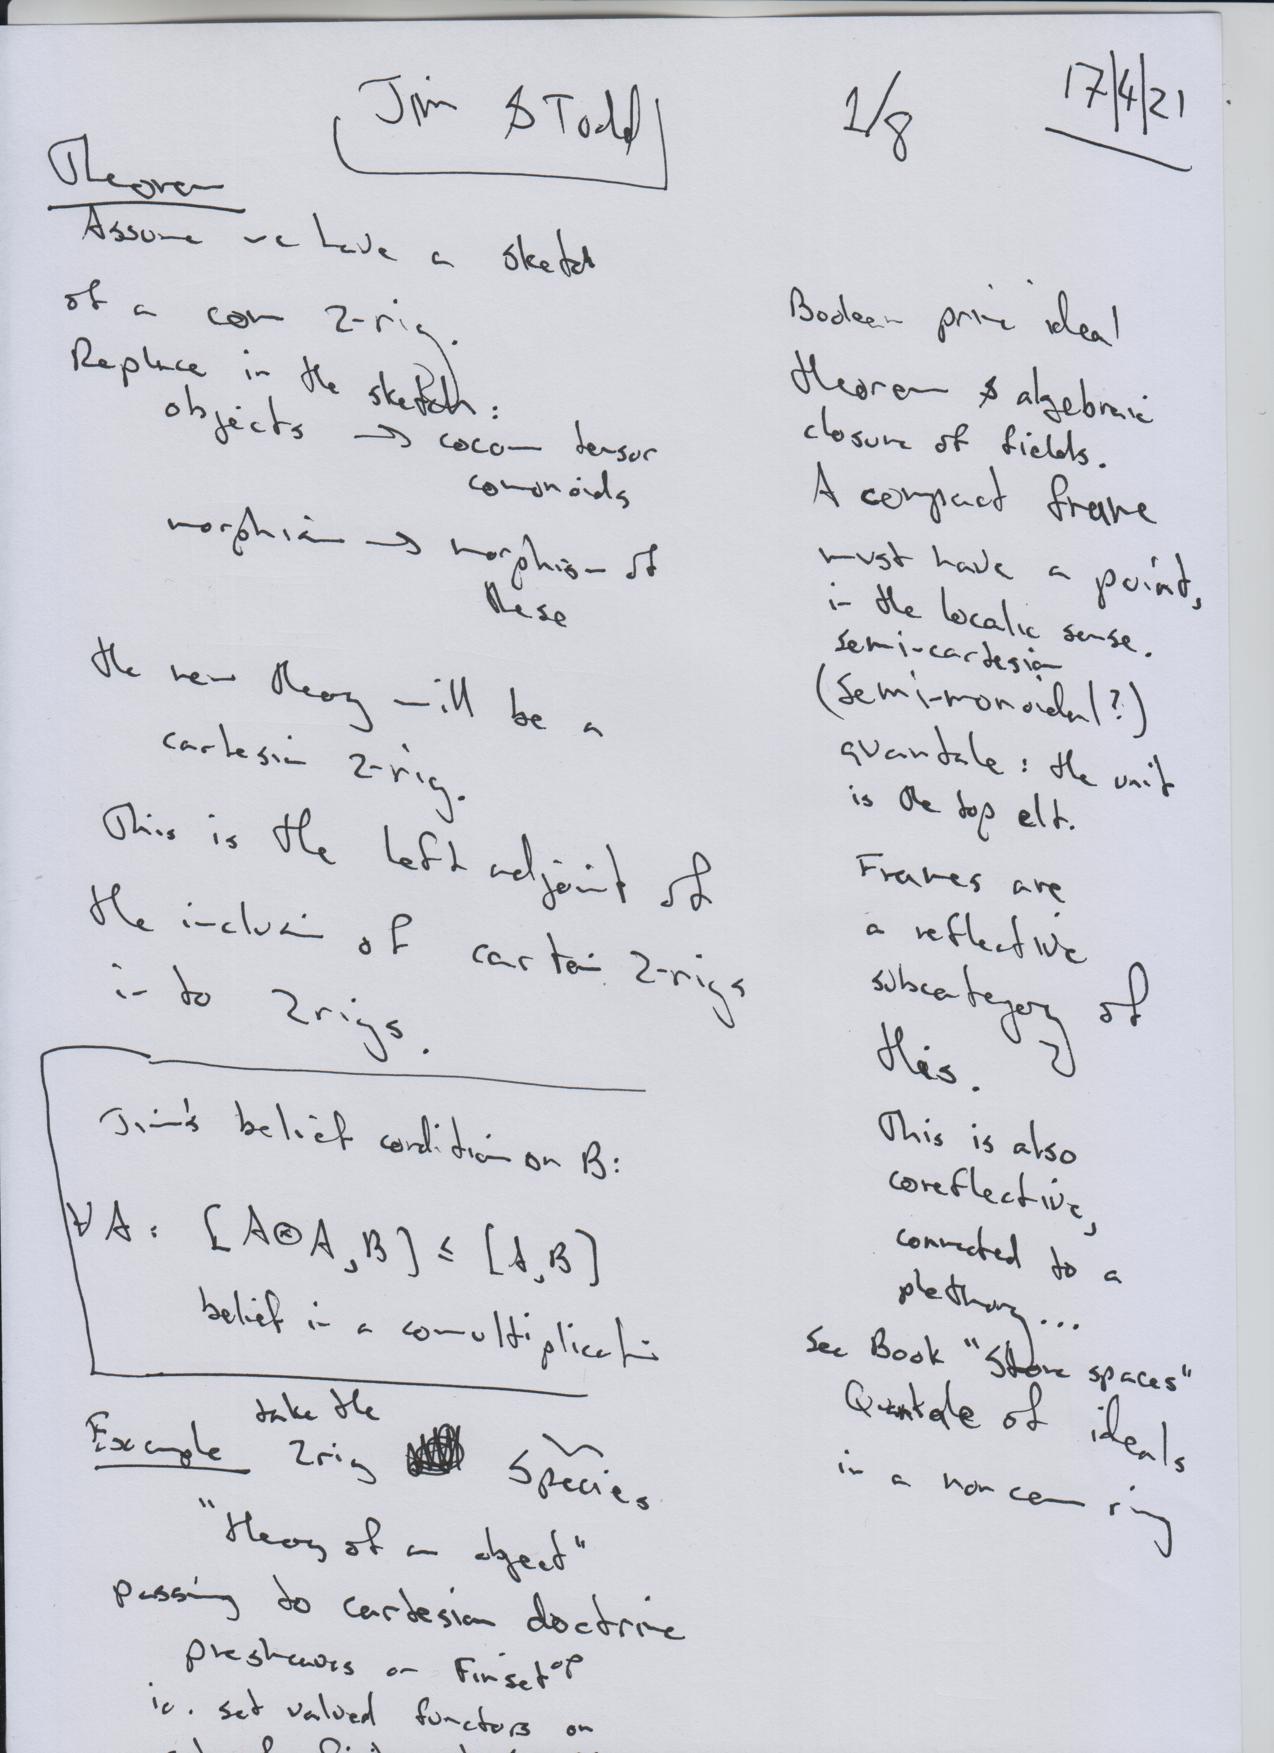 Jim & Todd
1/8
17/4/21
Theorem
Assume we have a sketch
of a com 2-rig.
Replace in the sketch:
objects → cocom tensor
comonoids
morphism → morphism of
these
the new theory will be a
cartesian 2-rig.
This is the left adjoint of
the inclusion of cartesian 2-rigs
in to 2rigs.
Jim's belief condition on B:
∀A: [A⊗A, B] ≤ [A, B]
belief in a comultiplication
Example take the
2rig Species
"theory of an object"
passing to cartesian doctrine
presheaves on Finset^op
ie. set valued functors on
Boolean prime ideal
theorem & algebraic
closure of fields.
A compact frame
must have a point,
in the localic sense.
semi-cartesian
(semi-monoidal?)
quantale: the unit
is the top elt.
Frames are
a reflective
subcategory of
this.
This is also
coreflective,
connected to a
plethory...
See Book "Stone spaces"
Quantale of ideals
in a non com ring